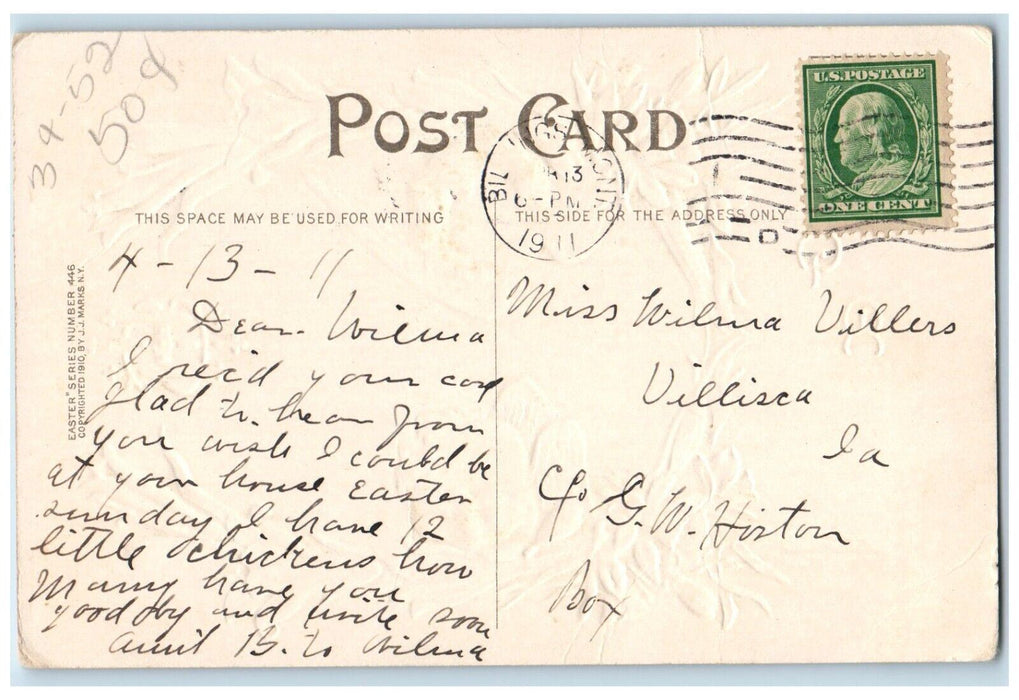 34-52
50¢
POST CARD
U.S. POSTAGE
ONE CENT
BILLINGS MONT.
APR 13
6-PM
1911
D
THIS SPACE MAY BE USED FOR WRITING
THIS SIDE FOR THE ADDRESS ONLY
"EASTER" SERIES NUMBER 446
COPYRIGHTED 1910, BY J.J. MARKS N.Y.
4-13-11
Dear Wilma
I rec'd your card
glad to hear from
you wish I could be
at your house Easter
sunday I have 12
little chickens how
many have you
goodby and write soon
aunt B. to Wilma
Miss Wilma Villers
Villisca
Ia
c/o G. W. Horton
Box